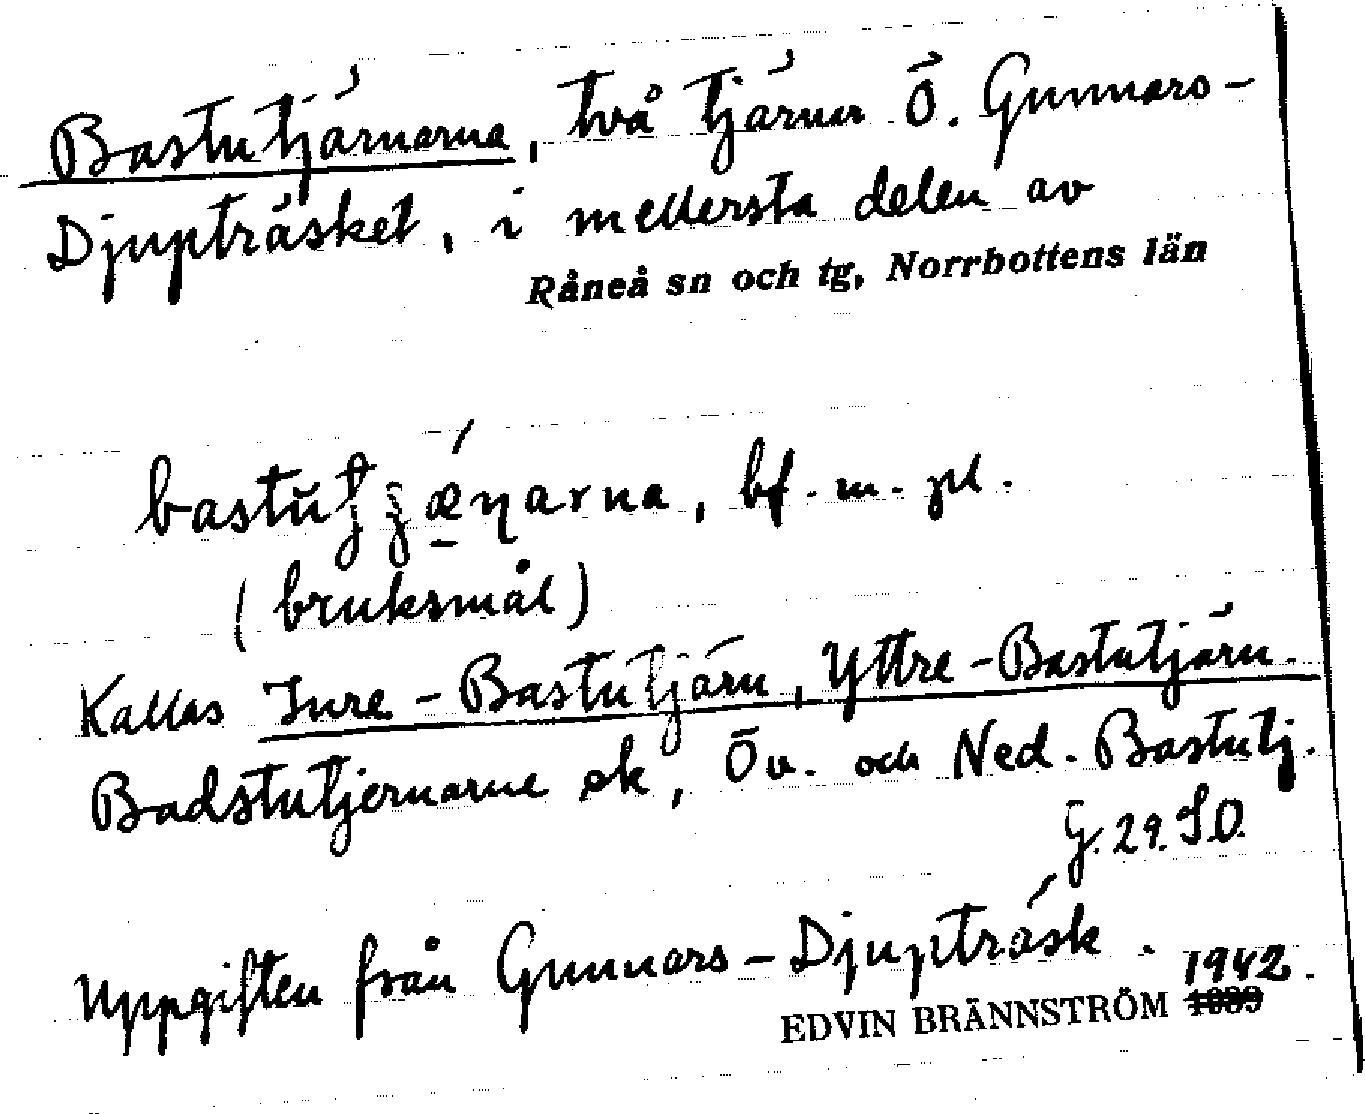 Bastutjärnarna, två tjärnar Ö. Gunnars-
Djupträsket, i mellersta delen av
Råneå sn och tg, Norrbottens län
bastŭtʒæ̱ɳarna, bf. m. pl.
(bruksmål)
Kallas Inre-Bastutjärn, Yttre-Bastutjärn.
Badstutjernarne ek, Öv. och Ned. Bastutj.
G. 29. SO.
Uppgiften från Gunnars-Djupträsk.
EDVIN BRÄNNSTRÖM 1942.